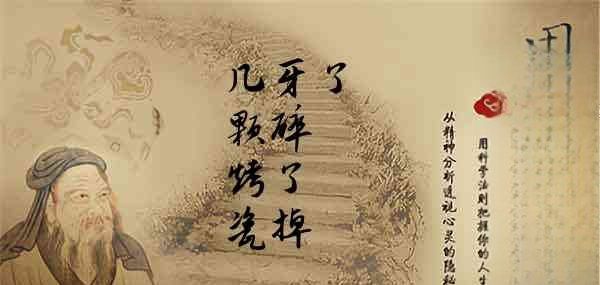 几颗烤瓷
牙碎了掉
了
用科学法则把握你的人生
从精神分析透视心灵的隐秘